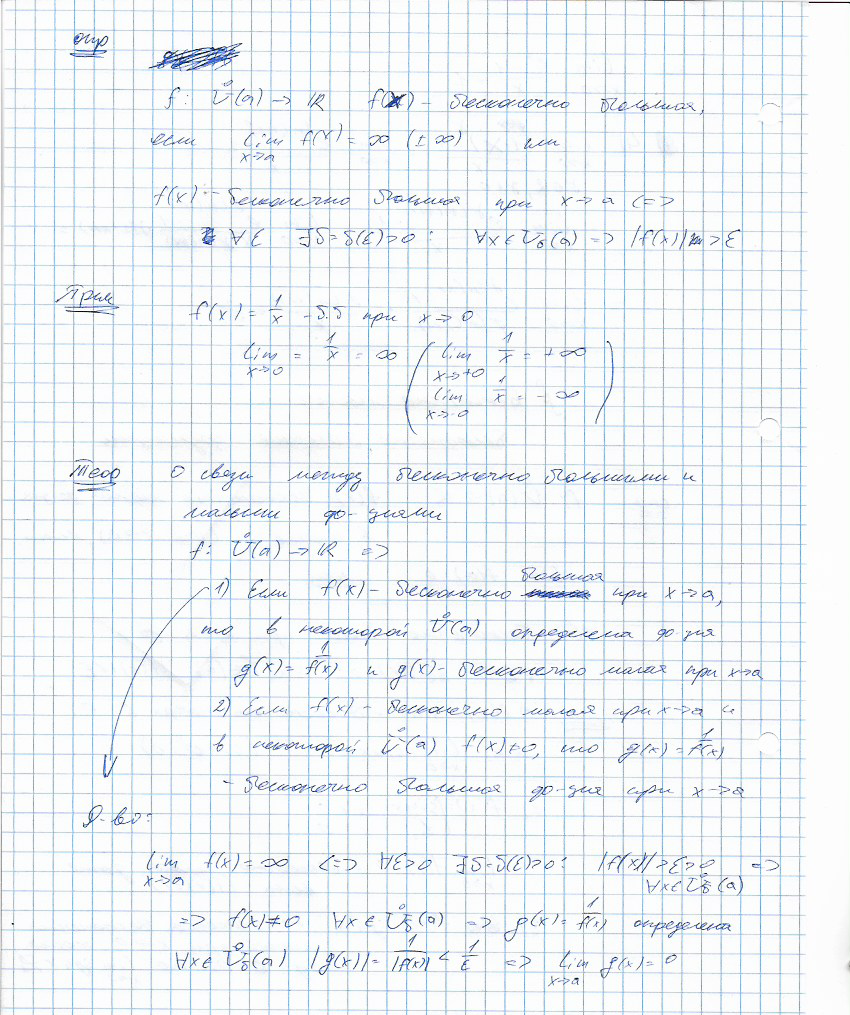 опр
f: Ů(a) → ℝ f(x) - бесконечно большая,
если lim x→a f(x) = ∞ (±∞) или
f(x) - бесконечно большая при x→a <=>
∀ε ∃δ=δ(ε)>0 : ∀x∈Ůδ(a) => |f(x)|>ε
Прим
f(x) = 1/x - б.б при x→0
lim x→0 = 1/x = ∞ ( lim x→+0 1/x = +∞
lim x→-0 1/x = -∞ )
Теор О связи между бесконечно большими и
малыми ф-циями
f: Ů(a) → ℝ =>
1) Если f(x) - бесконечно большая при x→a,
то в некоторой Ů(a) определена ф-ция
g(x) = 1/f(x) и g(x) - бесконечно малая при x→a
2) Если f(x) - бесконечно малая при x→a и
в некоторой Ů(a) f(x)≠0, то g(x) = 1/f(x)
- бесконечно большая ф-ция при x→a
Д-во:
lim x→a f(x) = ∞ <=> ∀ε>0 ∃δ=δ(ε)>0: |f(x)|>ε>0 =>
∀x∈Ůδ(a)
=> f(x)≠0 ∀x∈Ůδ(a) => g(x) = 1/f(x) определена
∀x∈Ůδ(a) |g(x)| = 1/|f(x)| < 1/ε => lim x→a g(x) = 0